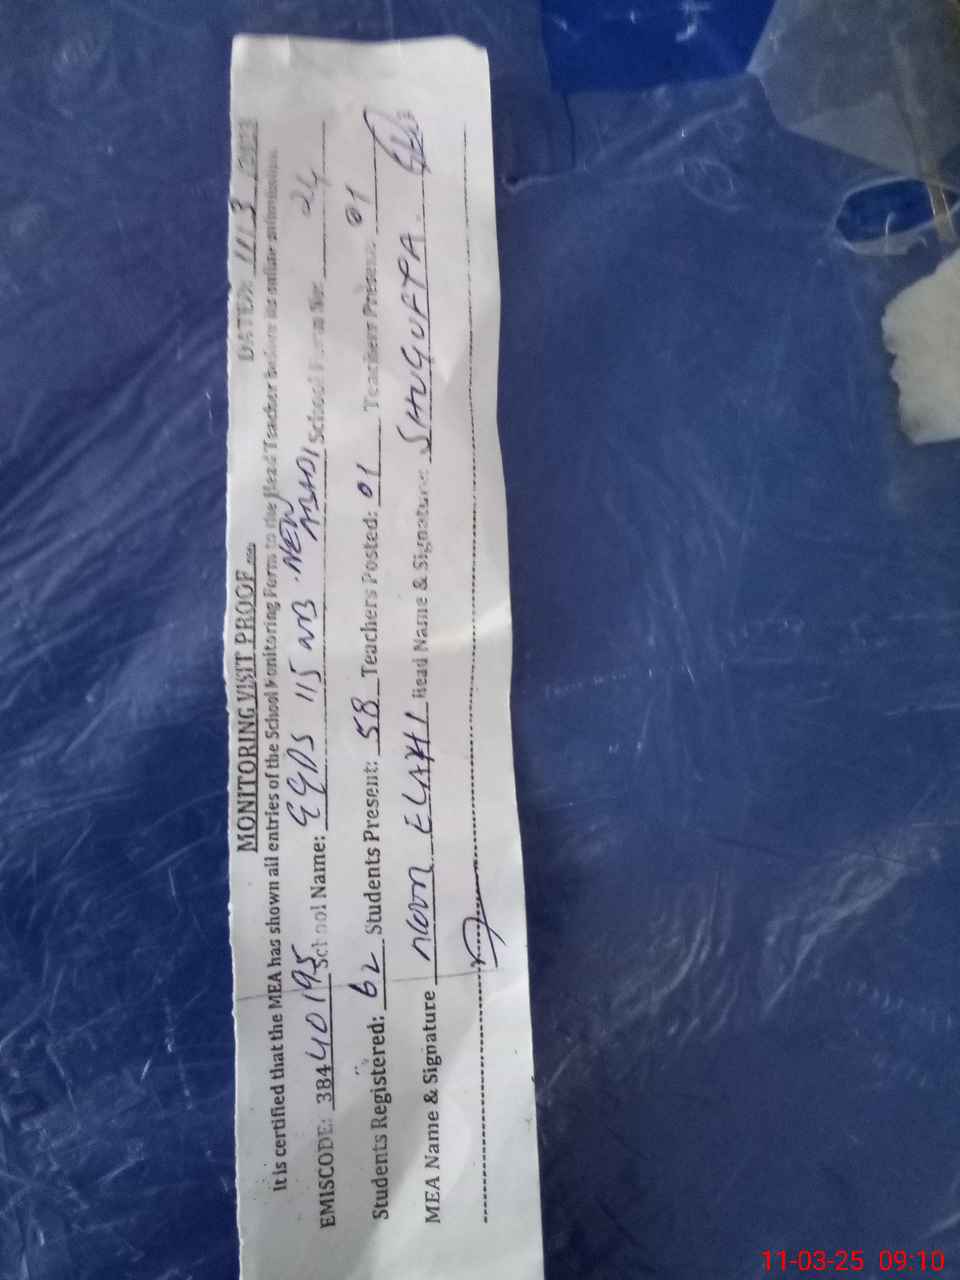 MONITORING VISIT PROOF DATED: 11.3 2023
It is certified that the MEA has shown all entries of the School Monitoring Form to the Head Teacher before its online submission.
EMISCODE: 38440195 School Name: GGPS 115 NB NEW ABADI School Form No. 24
Students Registered: 62 Students Present: 58 Teachers Posted: 01 Teachers Present: 01
MEA Name & Signature noon ELAHI Head Name & Signature: SHUGUFTA
11-03-25 09:10